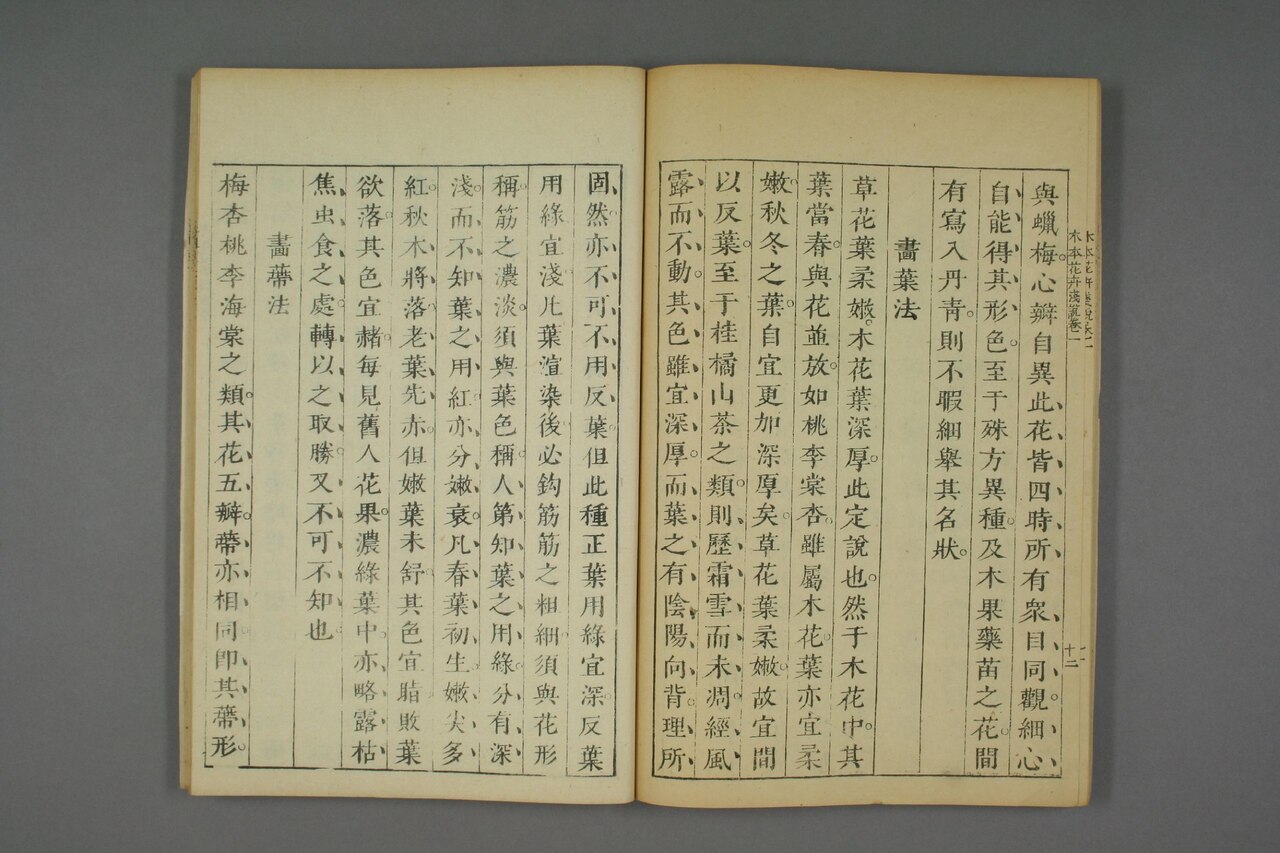 與蠟梅。心瓣自異此花皆四時所有衆目同觀。細心
自能得其形色。至于殊方異種。及木果藥苗之花。間
有寫入丹靑。則不暇細舉其名狀。
畫葉法
草花葉柔嫩。木花葉深厚。此定說也。然于木花中。其
葉當春。與花並放。如桃李棠杏。雖屬木花。葉亦宜柔
嫩。秋冬之葉。自宜更加深厚矣。草花葉柔嫩。故宜間
以反葉。至于桂橘山茶之類。則歷霜雪而未凋。經風
露而不動。其色雖宜深厚。而葉之有陰陽向背。理所
固然。亦不可不用反葉。但此種正葉用綠宜深。反葉
用綠宜淺。凡葉渲染後必鈎筋。筋之粗細。須與花形
稱。筋之濃淡。須與葉色稱。人第知葉之用綠。分有深
淺。而不知葉之用紅。亦分嫩衰。凡春葉初生。嫩尖多
紅。秋木將落。老葉先赤。但嫩葉未舒。其色宜脂。敗葉
欲落。其色宜赭。每見舊人花果。濃綠葉中。亦略露枯
焦虫食之處。轉以之取勝。又不可不知也。
畫蔕法
梅杏桃李海棠之類。其花五瓣。蔕亦相同。卽其蔕形。
木本花卉淺說卷一
十二